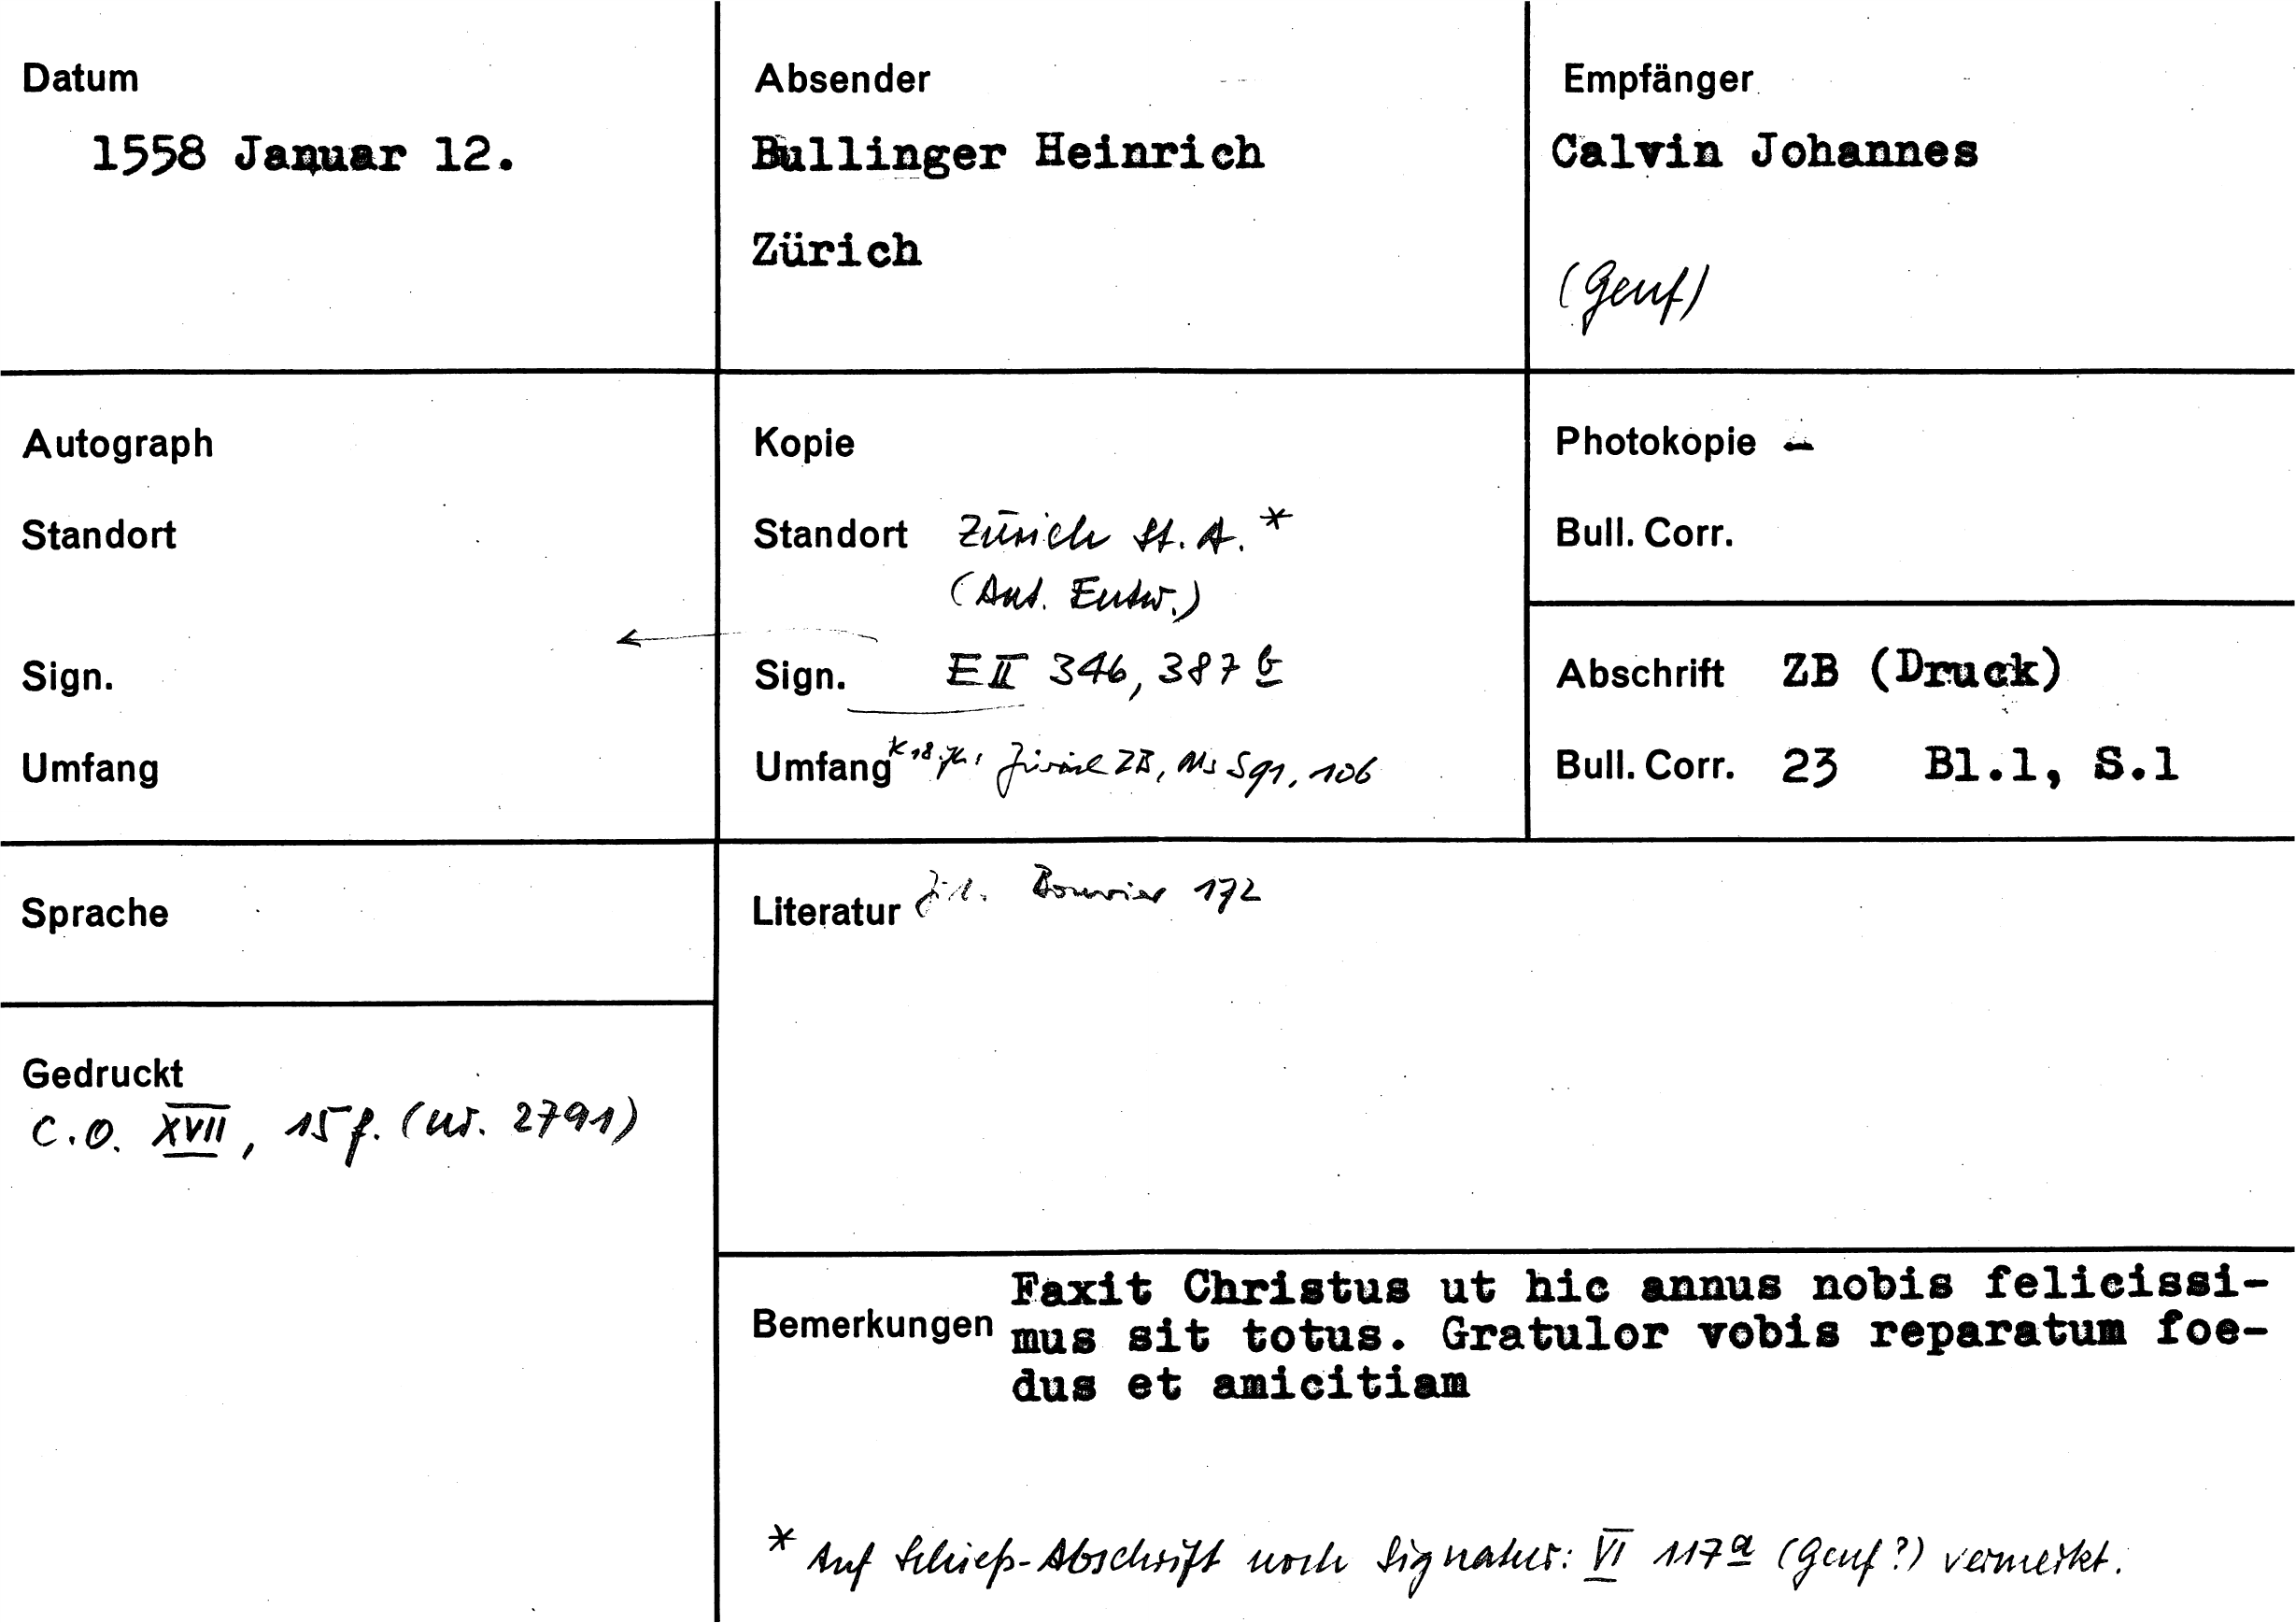 Datum
1558 Januar 12.
Absender
Bullinger Heinrich
Zürich
Empfänger
Calvin Johannes
(Genf)
Autograph
Standort
Sign.
Umfang
Kopie
Standort Zürich St. A. *
(Aut. Entw.)
Sign. E II 346, 387 b
Umfang K 18. Jh.: Zürich ZB, Ms S 91, 106
Photokopie -
Bull. Corr.
Abschrift ZB (Druck)
Bull. Corr. 23 Bl.1, S.1
Sprache
Literatur Zit. Bouvier 172
Gedruckt
C.O. XVII, 15 f. (Nr. 2791)
Bemerkungen Faxit Christus ut hic annus nobis felicissi-
mus sit totus. Gratulor vobis reparatum foe-
dus et amicitiam
* Auf Schieß-Abschrift noch Signatur: VI 117 a (Genf?) vermerkt.